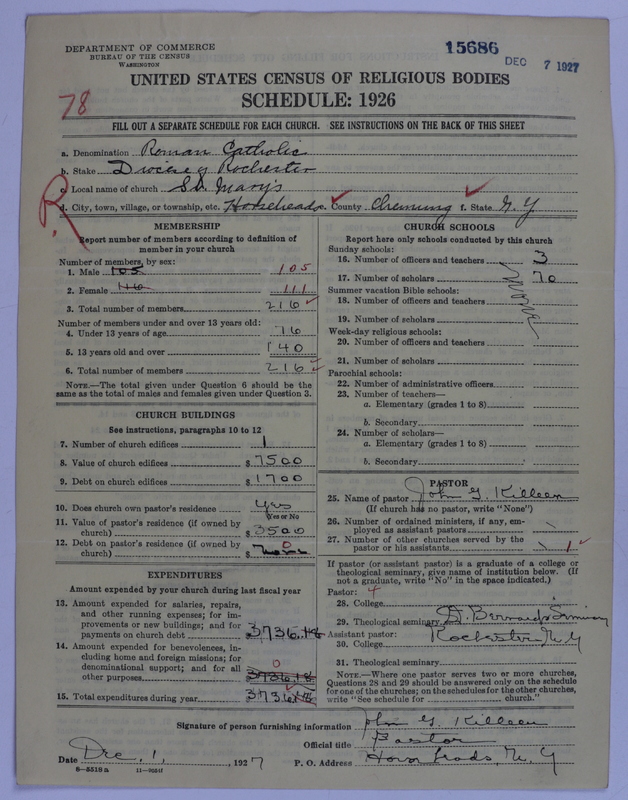 DEPARTMENT OF COMMERCE
BUREAU OF THE CENSUS
WASHINGTON
15686
DEC 7 1927
UNITED STATES CENSUS OF RELIGIOUS BODIES
78
SCHEDULE: 1926
FILL OUT A SEPARATE SCHEDULE FOR EACH CHURCH. SEE INSTRUCTIONS ON THE BACK OF THIS SHEET
a. Denomination Roman Catholic
b. Stake Diocese of Rochester
c. Local name of church St. Mary's
R.
d. City, town, village, or township, etc. Horseheads. County Chemung f. State N. Y
MEMBERSHIP
Report number of members according to definition of
member in your church
Number of members, by sex:
1. Male 105 105
2. Female 116 111
3. Total number of members 216
Number of members under and over 13 years old:
4. Under 13 years of age 76
5. 13 years old and over 140
6. Total number of members 216
NOTE.—The total given under Question 6 should be
same as the total of males and females given under Question 3.
CHURCH BUILDINGS
See instructions, paragraphs 10 to 12
7. Number of church edifices 1
8. Value of church edifices $ 7500
9. Debt on church edifices $ 1700
10. Does church own pastor's residence Yes
Yes or No
11. Value of pastor's residence (if owned by
church) $ 3500
12. Debt on pastor's residence (if owned by
church) $ none 0
EXPENDITURES
Amount expended by your church during last fiscal year
13. Amount expended for salaries, repairs,
and other running expenses; for im-
provements or new buildings; and for
payments on church debt $ 3736.18
14. Amount expended for benevolences, in-
cluding home and foreign missions; for
denominational support; and for all
other purposes 0 3736.18
15. Total expenditures during year $ 3736.18
CHURCH SCHOOLS
Report here only schools conducted by this church
Sunday schools:
16. Number of officers and teachers 3
17. Number of scholars 70
Summer vacation Bible schools:
18. Number of officers and teachers
none
19. Number of scholars
Week-day religious schools:
20. Number of officers and teachers
21. Number of scholars
Parochial schools:
22. Number of administrative officers
23. Number of teachers—
a. Elementary (grades 1 to 8)
b. Secondary
24. Number of scholars—
a. Elementary (grades 1 to 8)
b. Secondary
PASTOR
25. Name of pastor John G. Killeen
(If church has no pastor, write "None")
26. Number of ordained ministers, if any, em-
ployed as assistant pastors
27. Number of other churches served by the
pastor or his assistants 1
If pastor (or assistant pastor) is a graduate of a college or
theological seminary, give name of institution below. (If
not a graduate, write "No" in the space indicated.)
Pastor: 4
28. College
29. Theological seminary St. Bernard's Seminary
Assistant pastor: Rochester N. Y
30. College
31. Theological seminary
NOTE.—Where one pastor serves two or more churches,
Questions 28 and 29 should be answered only on the schedule
for one of the churches; on the schedules for the other churches,
write "See schedule for church."
Signature of person furnishing information John G. Killeen
Official title Pastor
Date Dec. 1, 1927 P. O. Address Horseheads, N. Y
8—5518a 11—9054f